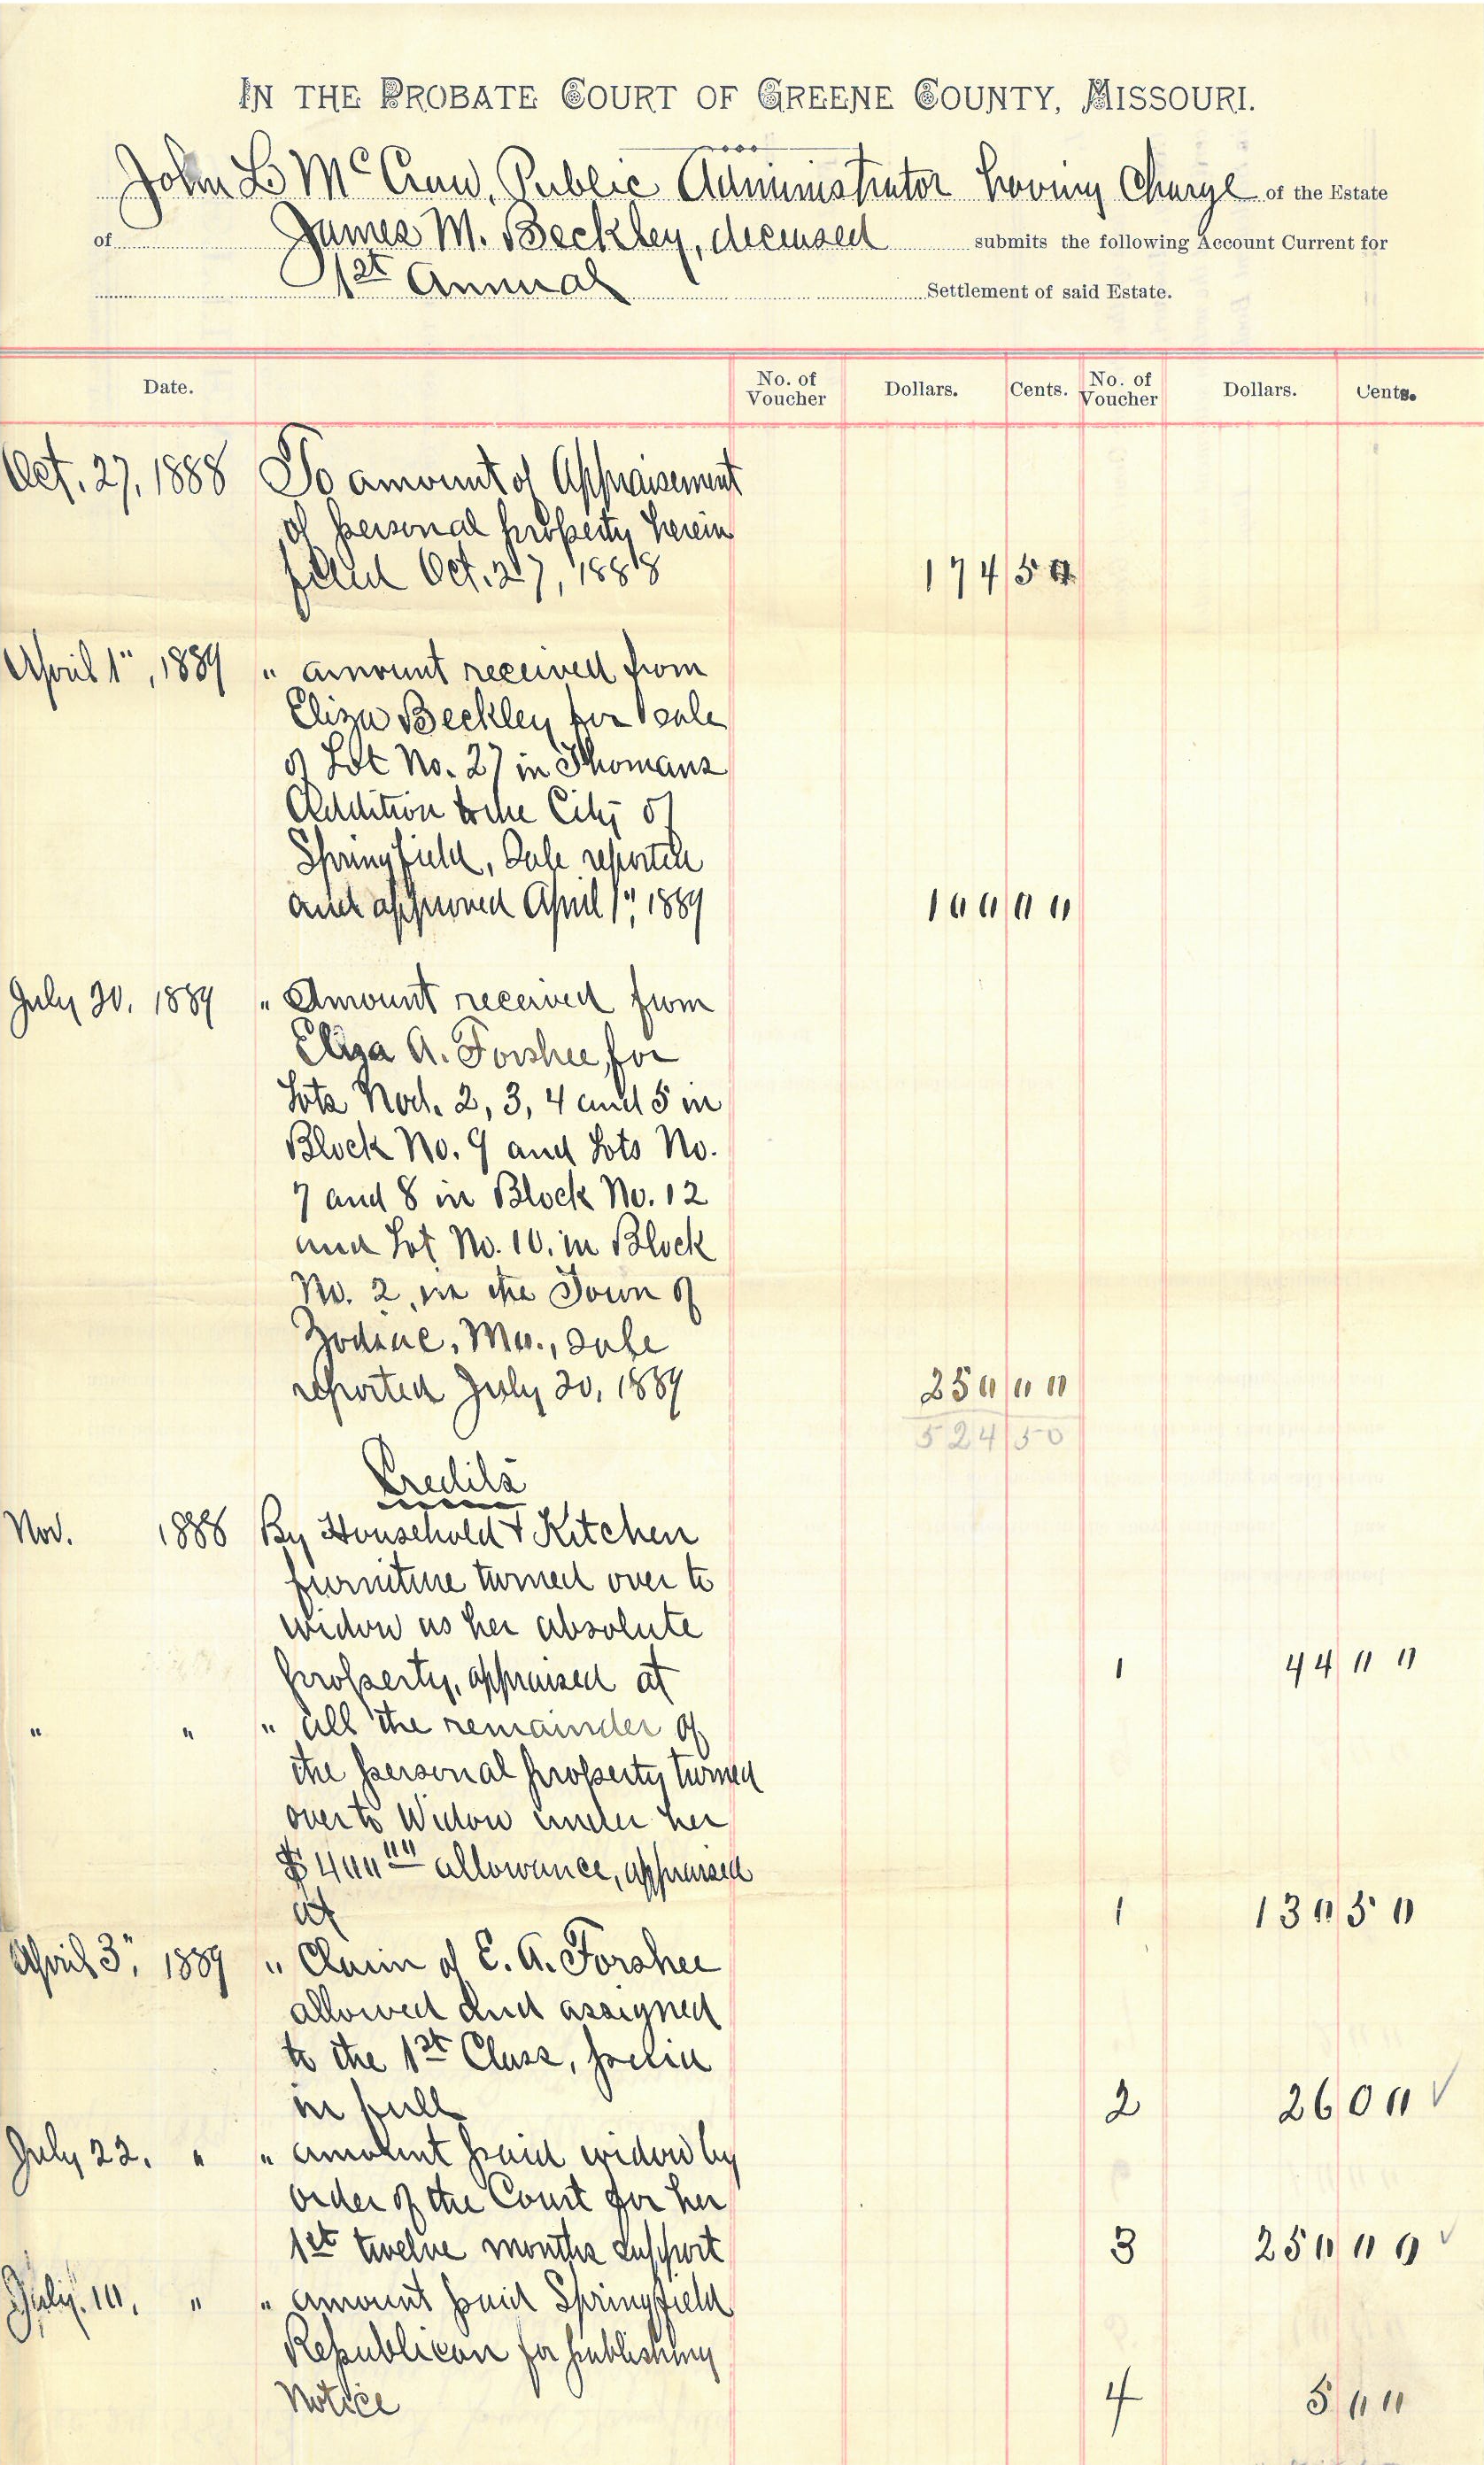 IN THE PROBATE COURT OF GREENE COUNTY, MISSOURI.
John L McCraw, Public Administrator having charge of the Estate
of James M. Beckley, deceased submits the following Account Current for
1st Annual Settlement of said Estate.
Date. No. of Voucher Dollars. Cents. No. of Voucher Dollars. Cents.
Oct. 27, 1888 To amount of Appraisement
of personal property herein
filed Oct. 27, 1888 174 50
April 1", 1889 " amount received from
Eliza Beckley for sale
of Lot No. 27 in Thomans
Addition to the City of
Springfield, Sale reported
and approved April 1", 1889 100 00
July 20, 1889 " Amount received from
Eliza A. Forshee, for
Lots Nod. 2, 3, 4 and 5 in
Block No. 9 and Lots No.
7 and 8 in Block No. 12
and Lot No. 10. in Block
No. 2, in the Town of
Zodiac, Mo., sale
reported July 20, 1889 250 00
524 50
Credits
Nov. 1888 By Household & Kitchen
furniture turned over to
widow as her absolute
property, appraised at 1 44 00
" " " all the remainder of
the personal property turned
over to Widow under her
$400 00 allowance, appraised
at 1 130 50
April 3", 1889 " Claim of E. A. Forshee
allowed and assigned
to the 1st Class, paid
in full 2 26 00 ✓
July 22, " " amount paid widow by
order of the Court for her
1st twelve months support 3 250 00 ✓
July. 10, " " amount paid Springfield
Republican for publishing
Notice 4 5 00